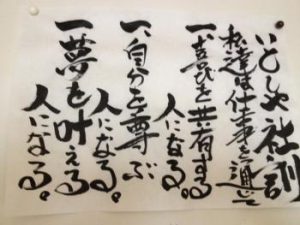 いとしや社訓
私達は仕事を通じて
一、喜びを共有する
人になる。
一、自分を尊ぶ
人になる。
一、夢も叶える
人になる。